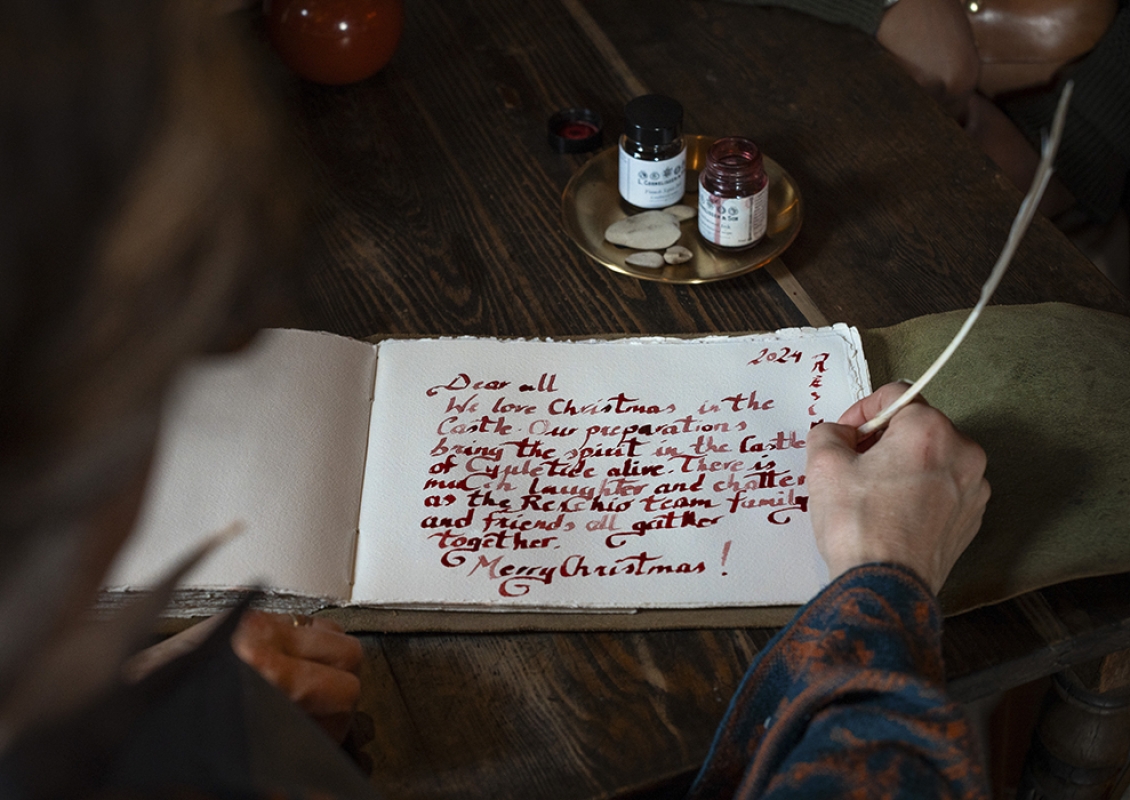 2024
R
E
S
Dear all
We love Christmas in the
Castle. Our preparations
bring the spirit in the Castle
of Yuletide alive. There is
much laughter and chatter
as the Reschio team family
and friends all gather
together.
Merry Christmas !